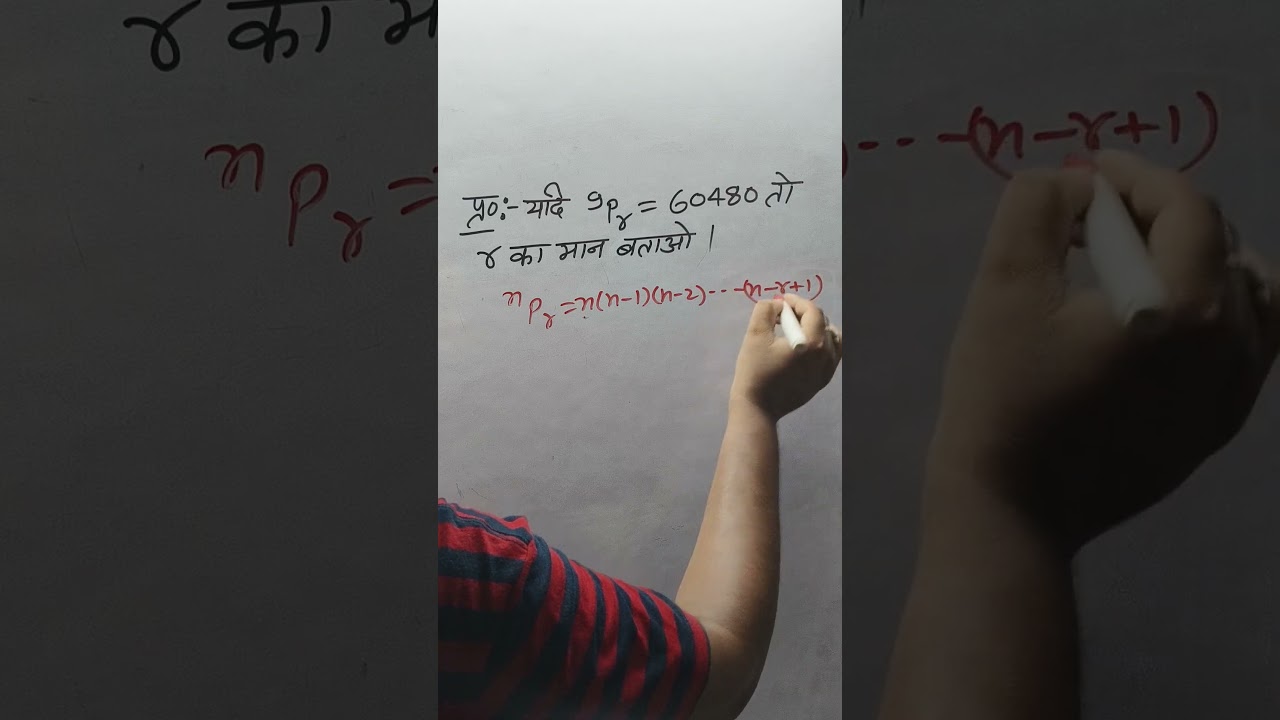 प्र०:- यदि ⁹Pᵣ = 60480 तो
r का मान बताओ ।
ⁿPᵣ = n(n-1)(n-2)---(n-r+1)